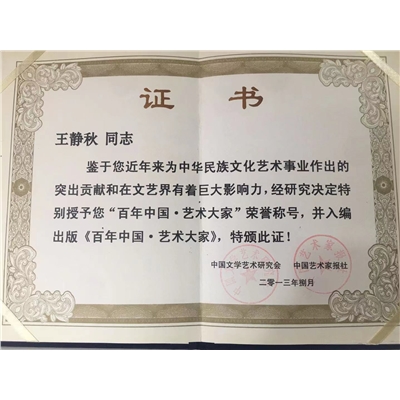 证 书
王静秋 同志
鉴于您近年来为中华民族文化艺术事业作出的
突出贡献和在文艺界有着巨大影响力，经研究决定特
别授予您“百年中国·艺术大家”荣誉称号，并入编
出版《百年中国·艺术大家》，特颁此证！
中国文学艺术研究会 中国艺术家报社
二零一三年捌月